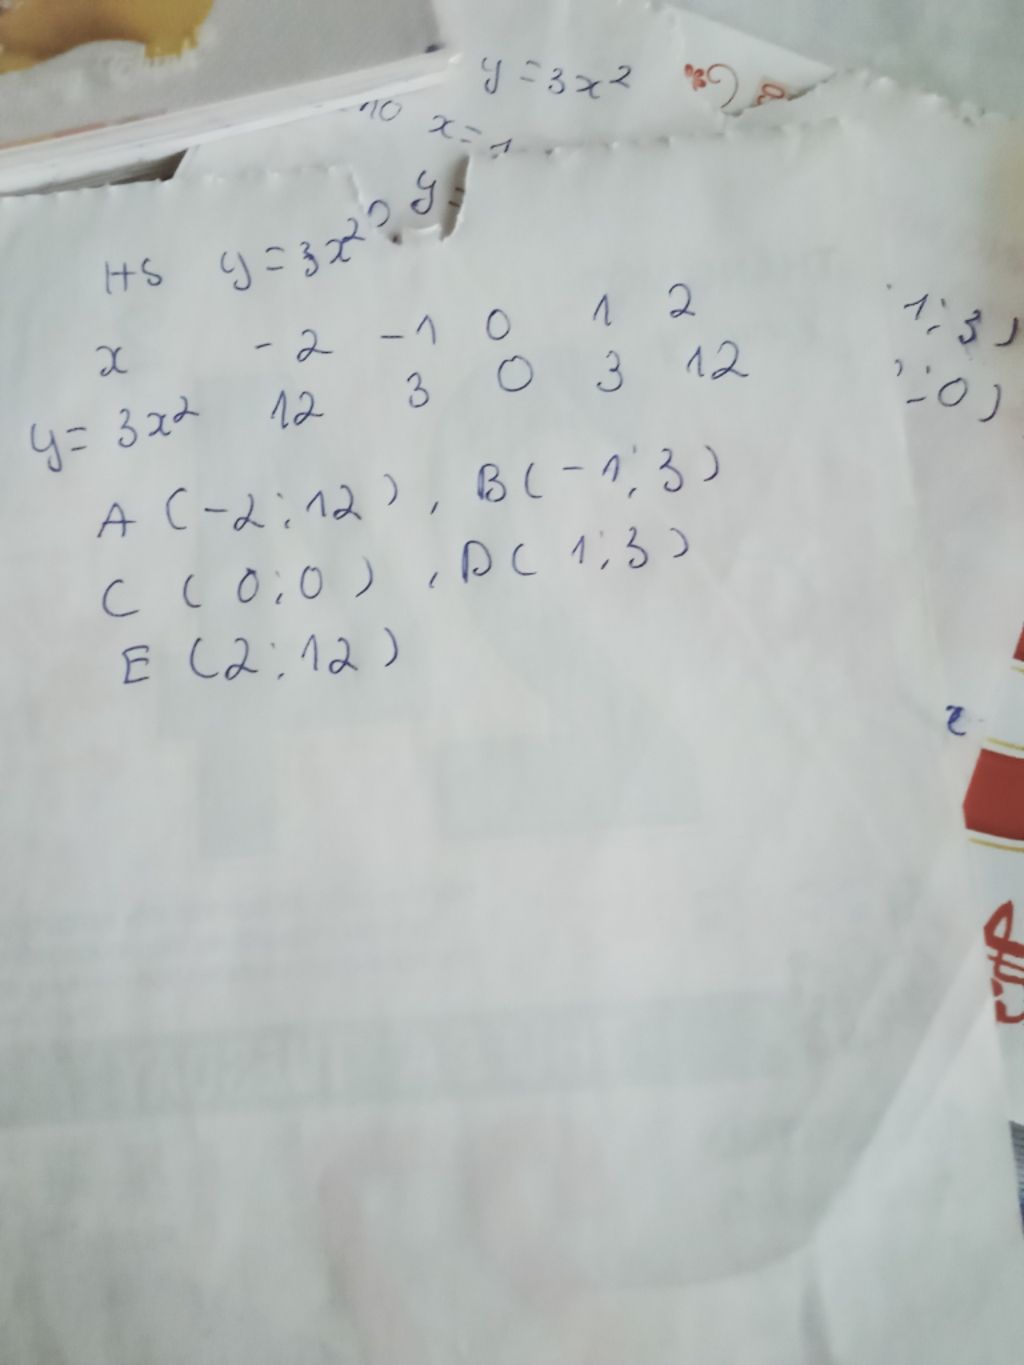 y = 3x²
10 x = 1
y =
HS y = 3x²
x -2 -1 0 1 2
y = 3x² 12 3 0 3 12
1; 3)
; 0)
A (-2; 12), B (-1; 3)
C (0; 0), D (1; 3)
E (2; 12)